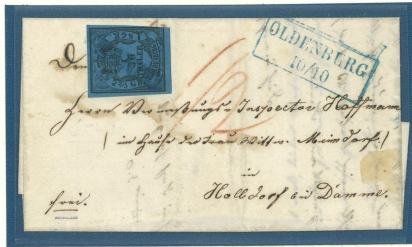 OLDENBURG
10/10
Den
Herrn Vermessungs-Inspector Hoffmann
(im Hause der Frau Wittwe Meindorf.)
in
Holdorf bei Damme.
frei.